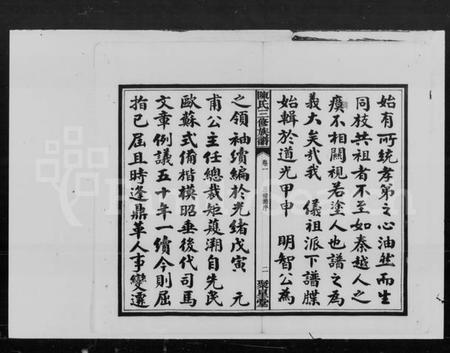 始有所統孝弟之心油然而生
同枝共祖者不至如秦越人之
瘼不相關視若塗人也譜之為
義大矣哉我 儀祖派下譜牒
始輯於道光甲申 明智公為
陳氏三修族譜 卷一 二 聚星堂
之領袖續編於光緒戊寅 元
甫公主任總裁矩蒦溯自先民
歐蘇式備楷模昭垂後代司馬
文章例議五十年一續今則屈
指已屆且時逢鼎革人事變遷